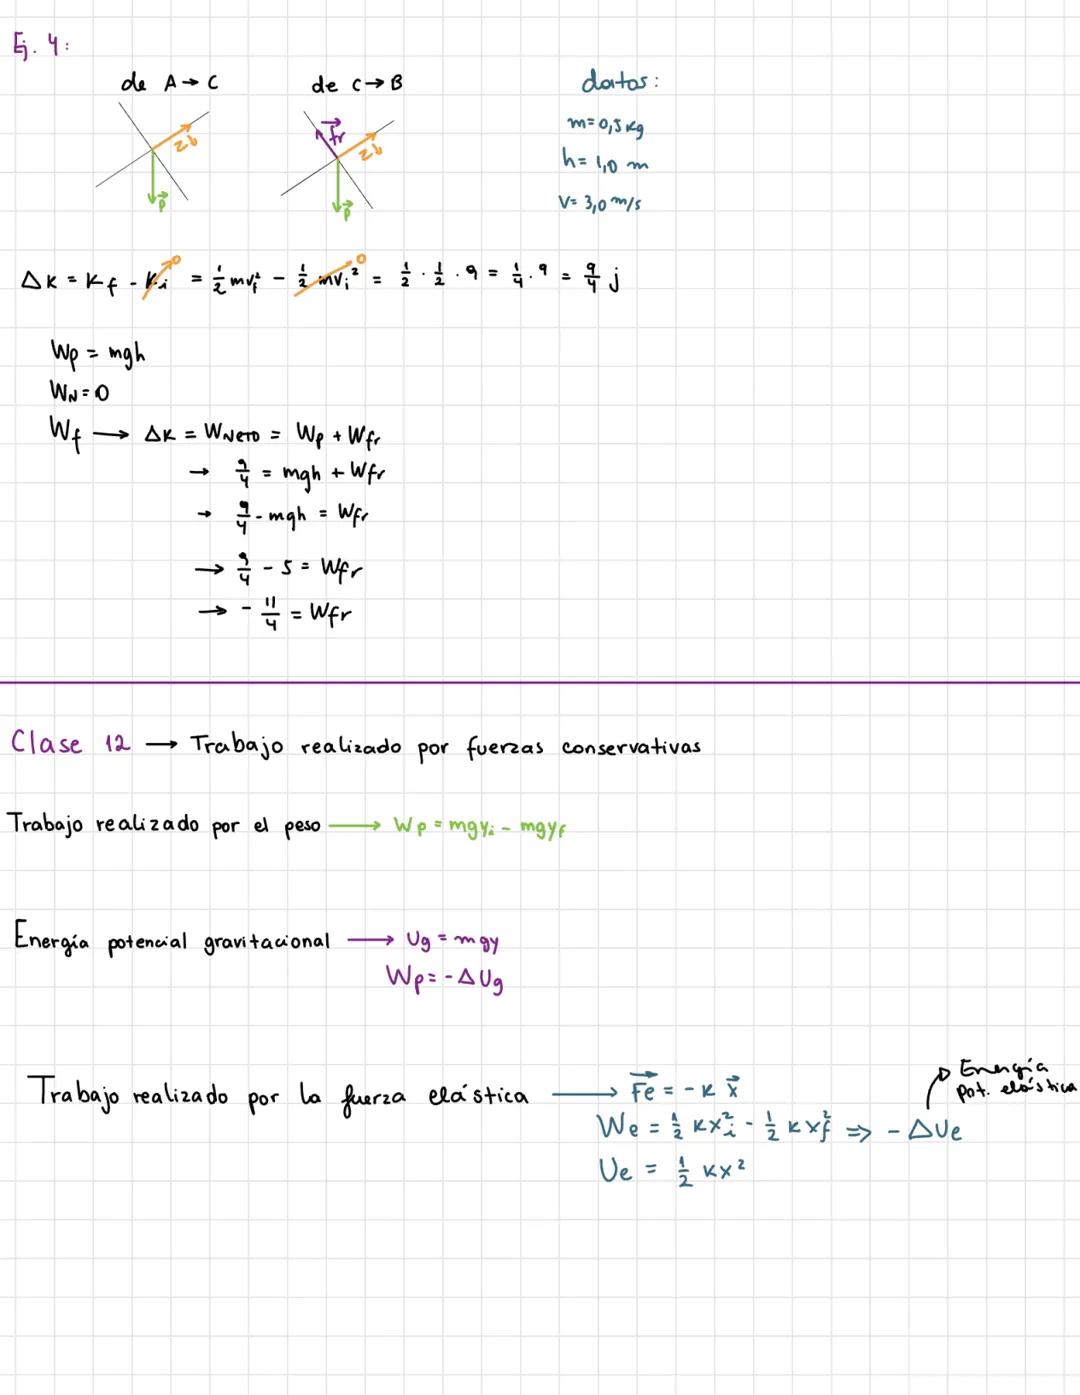 Ej. 4:
de A → C
de C → B
datos:
m= 0,5 kg
h= 1,0 m
V= 3,0 m/s
N
P
fr
N
P
ΔK = Kf - Ki 0 = 1/2 mvf² - 1/2 mvi² 0 = 1/2 · 1/2 · 9 = 1/4 · 9 = 9/4 j
Wp = mgh
WN = 0
Wf → ΔK = WNETO = Wp + Wfr
→ 9/4 = mgh + Wfr
→ 9/4 - mgh = Wfr
→ 9/4 - 5 = Wfr
→ - 11/4 = Wfr
Clase 12 → Trabajo realizado por fuerzas conservativas
Trabajo realizado por el peso → Wp = mgyi - mgyf
Energía potencial gravitacional → Ug = mgy
Wp = - ΔUg
Trabajo realizado por la fuerza elástica → Fe = - K x
We = 1/2 Kxi² - 1/2 Kxf² ⇒ - ΔUe
Energía
pot. elástica
Ue = 1/2 Kx²